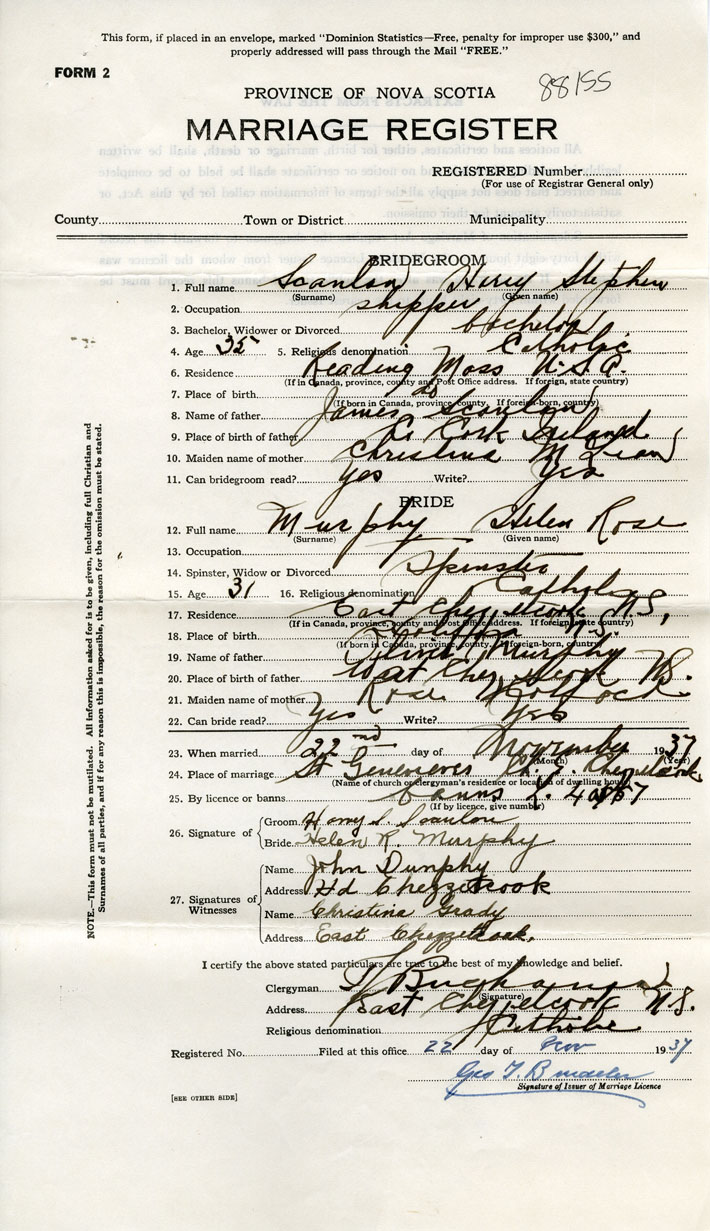 This form, if placed in an envelope, marked "Dominion Statistics—Free, penalty for improper use $300," and
properly addressed will pass through the Mail "FREE."
FORM 2
88155
PROVINCE OF NOVA SCOTIA
MARRIAGE REGISTER
REGISTERED Number
(For use of Registrar General only)
County Town or District Municipality
BRIDEGROOM
1. Full name Scanlon Harry Stephen
(Surname) (Given name)
2. Occupation shipper
3. Bachelor, Widower or Divorced bachelor
4. Age 35 5. Religious denomination Catholic
6. Residence Reading Mass U.S.A.
(If in Canada, province, county and Post Office address. If foreign, state country)
7. Place of birth do
(If born in Canada, province, county. If foreign-born, country)
8. Name of father James Scanlon
9. Place of birth of father Co Cork Ireland
10. Maiden name of mother Christina
11. Can bridegroom read? Yes Write? Yes
BRIDE
12. Full name Murphy Helen Rose
(Surname) (Given name)
13. Occupation
14. Spinster, Widow or Divorced Spinster
15. Age 31 16. Religious denomination Catholic
17. Residence East Chezzetcook N.S,
(If in Canada, province, county and Post Office address. If foreign, state country)
18. Place of birth
(If born in Canada, province, county. If foreign-born, country)
19. Name of father Murphy
20. Place of birth of father West Chezzetcook NS.
21. Maiden name of mother Rose
22. Can bride read? Yes Write? Yes
23. When married 22nd day of November 1937
(Month) (Year)
24. Place of marriage St Genevieves Chezzetcook
(Name of church or clergyman's residence or location of dwelling house)
25. By licence or banns banns
(If by licence, give number)
26. Signature of Groom Harry S. Scanlon
Bride Helen R. Murphy
27. Signatures of Witnesses Name John Dunphy
Address Hd Chezzetcook
Name Christina Grady
Address East Chezzetcook.
I certify the above stated particulars are true to the best of my knowledge and belief.
Clergyman
(Signature)
Address East Chezzetcook N.S.
Religious denomination Catholic
Registered No. Filed at this office 22 day of Nov 1937
Geo T.
Signature of Issuer of Marriage Licence
[SEE OTHER SIDE]
NOTE.—This form must not be mutilated. All information asked for is to be given, including full Christian and
Surnames of all parties, and if for any reason this is impossible, the reason for the omission must be stated.